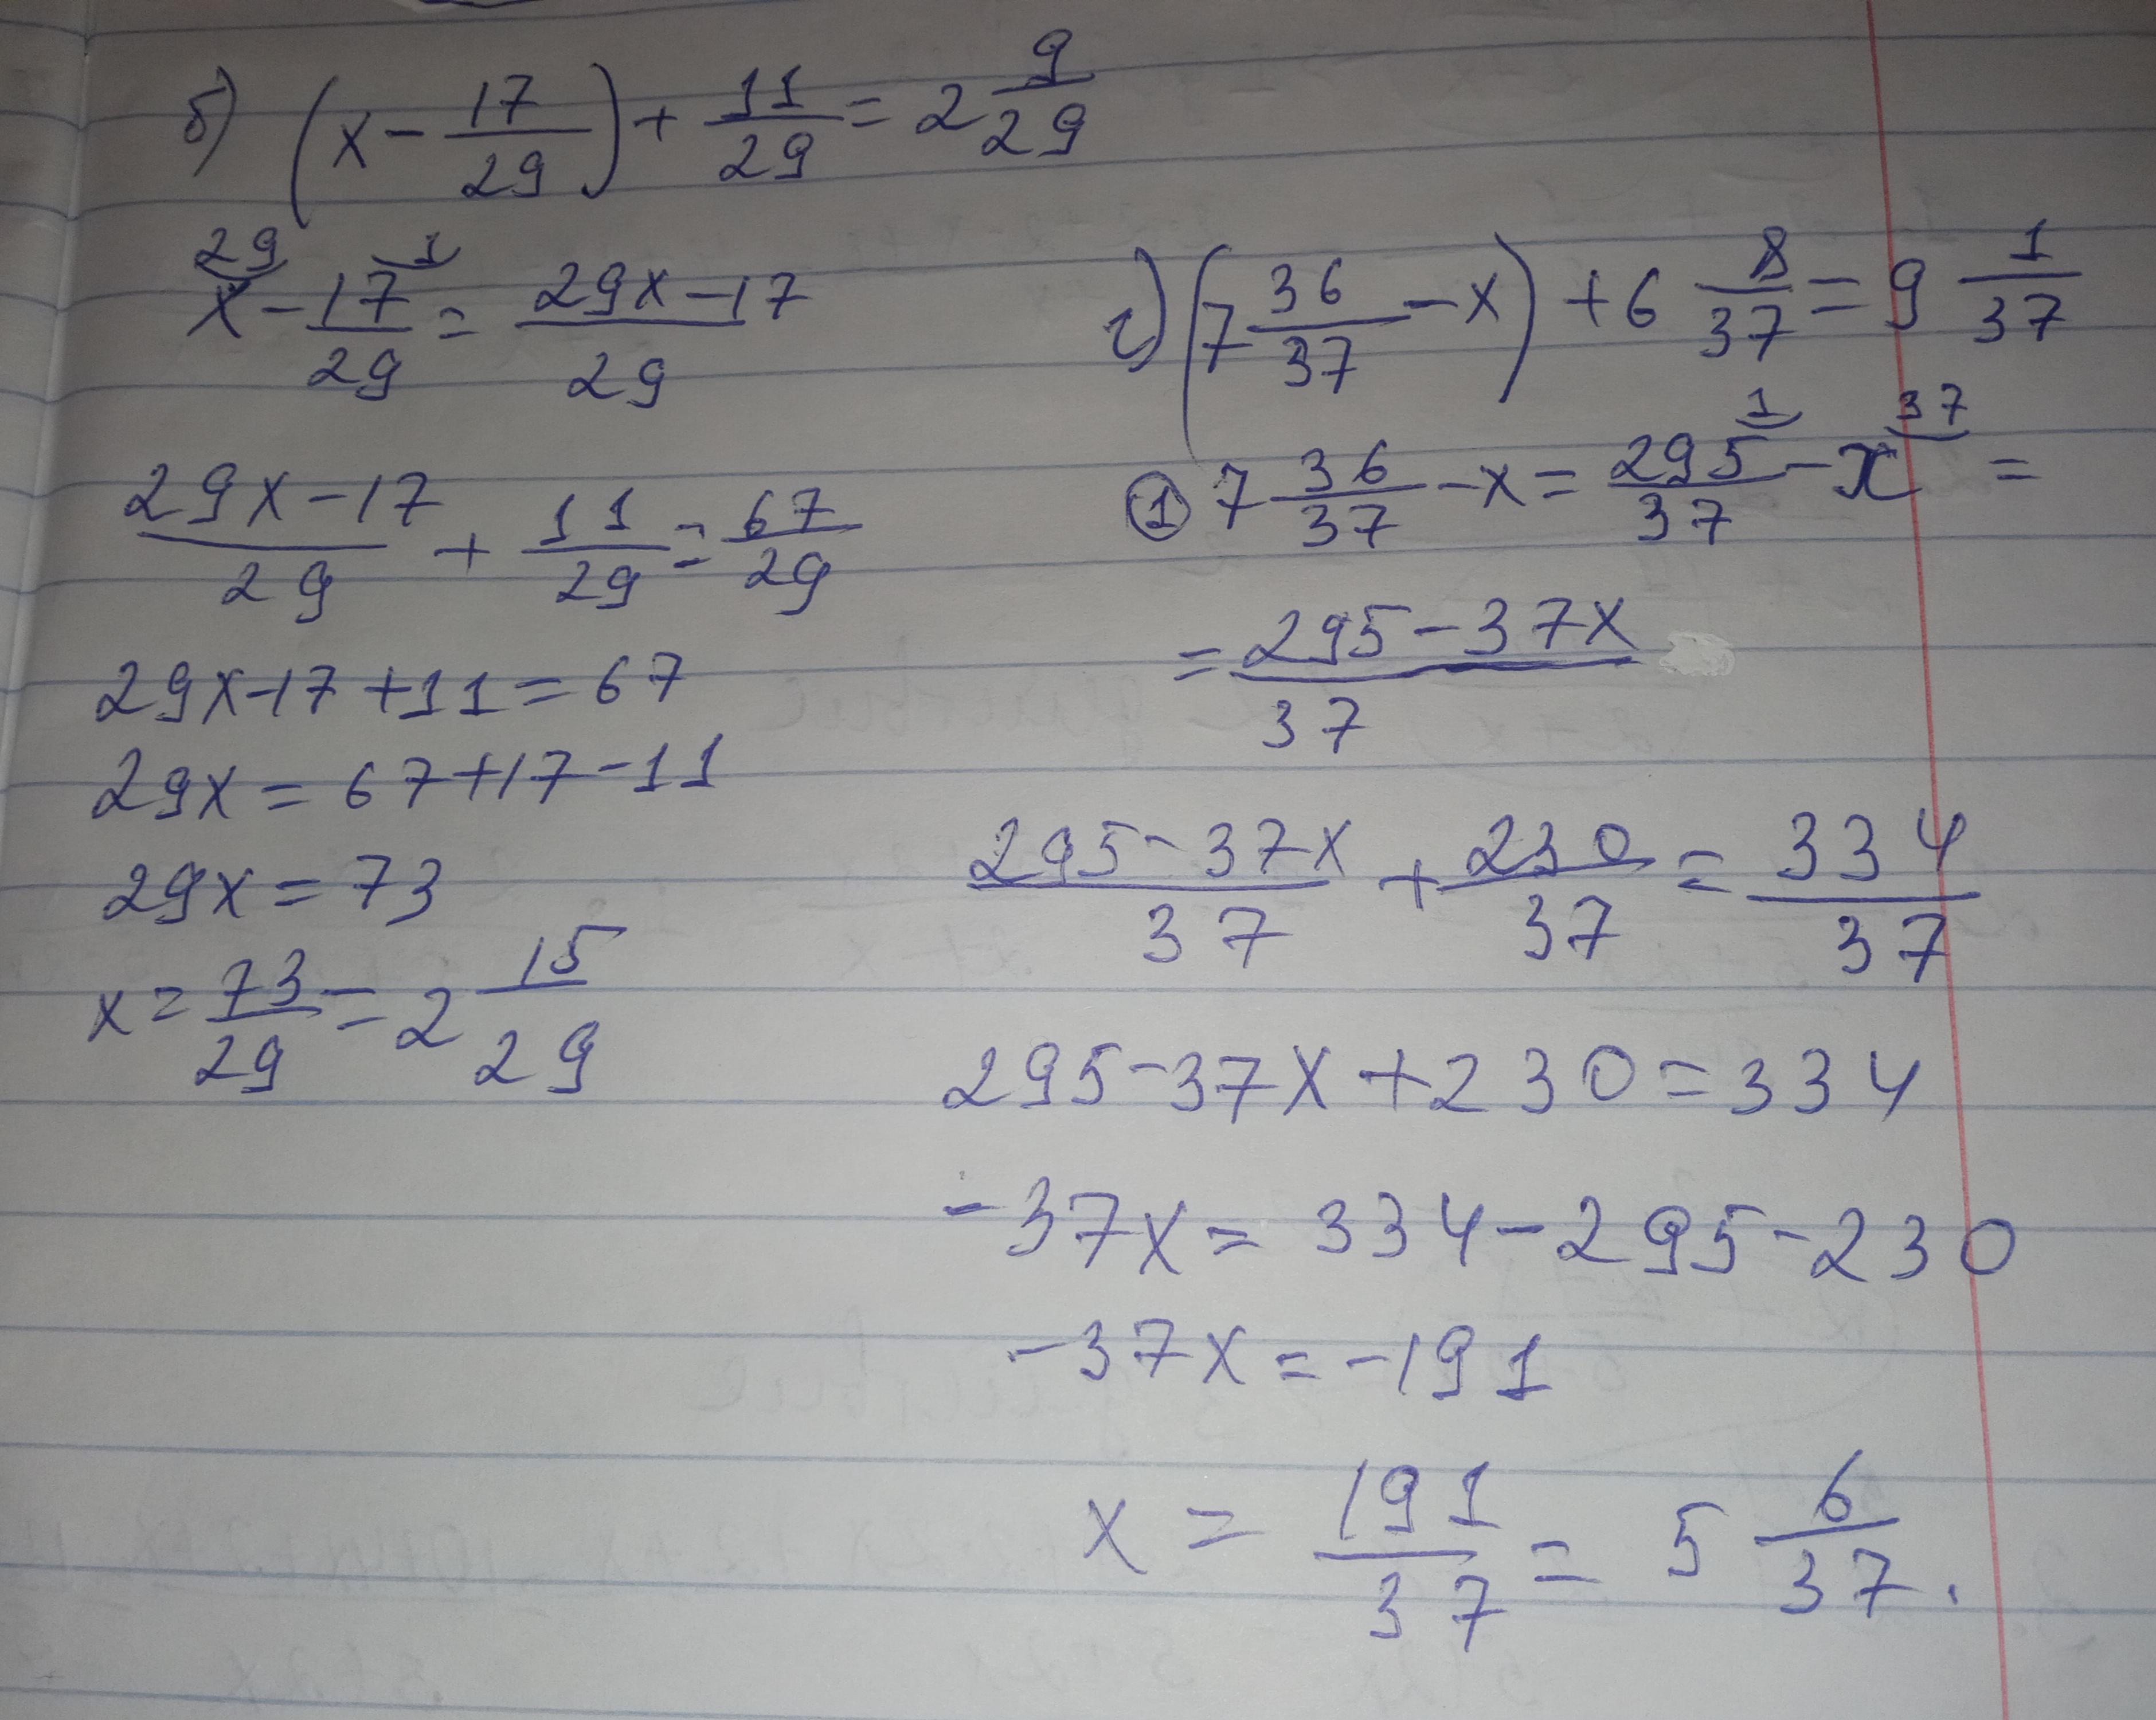 б) (x - 17/29) + 11/29 = 2 9/29
29 1
x - 17/29 = 29x-17/29
29x-17/29 + 11/29 = 67/29
29x-17+11=67
29x=67+17-11
29x=73
x=73/29=2 15/29
г) (7 36/37 - x) + 6 8/37 = 9 1/37
1 37
① 7 36/37 - x = 295/37 - x =
= 295-37x/37
295-37x/37 + 230/37 = 334/37
295-37x+230=334
-37x=334-295-230
-37x=-191
x = 191/37 = 5 6/37.